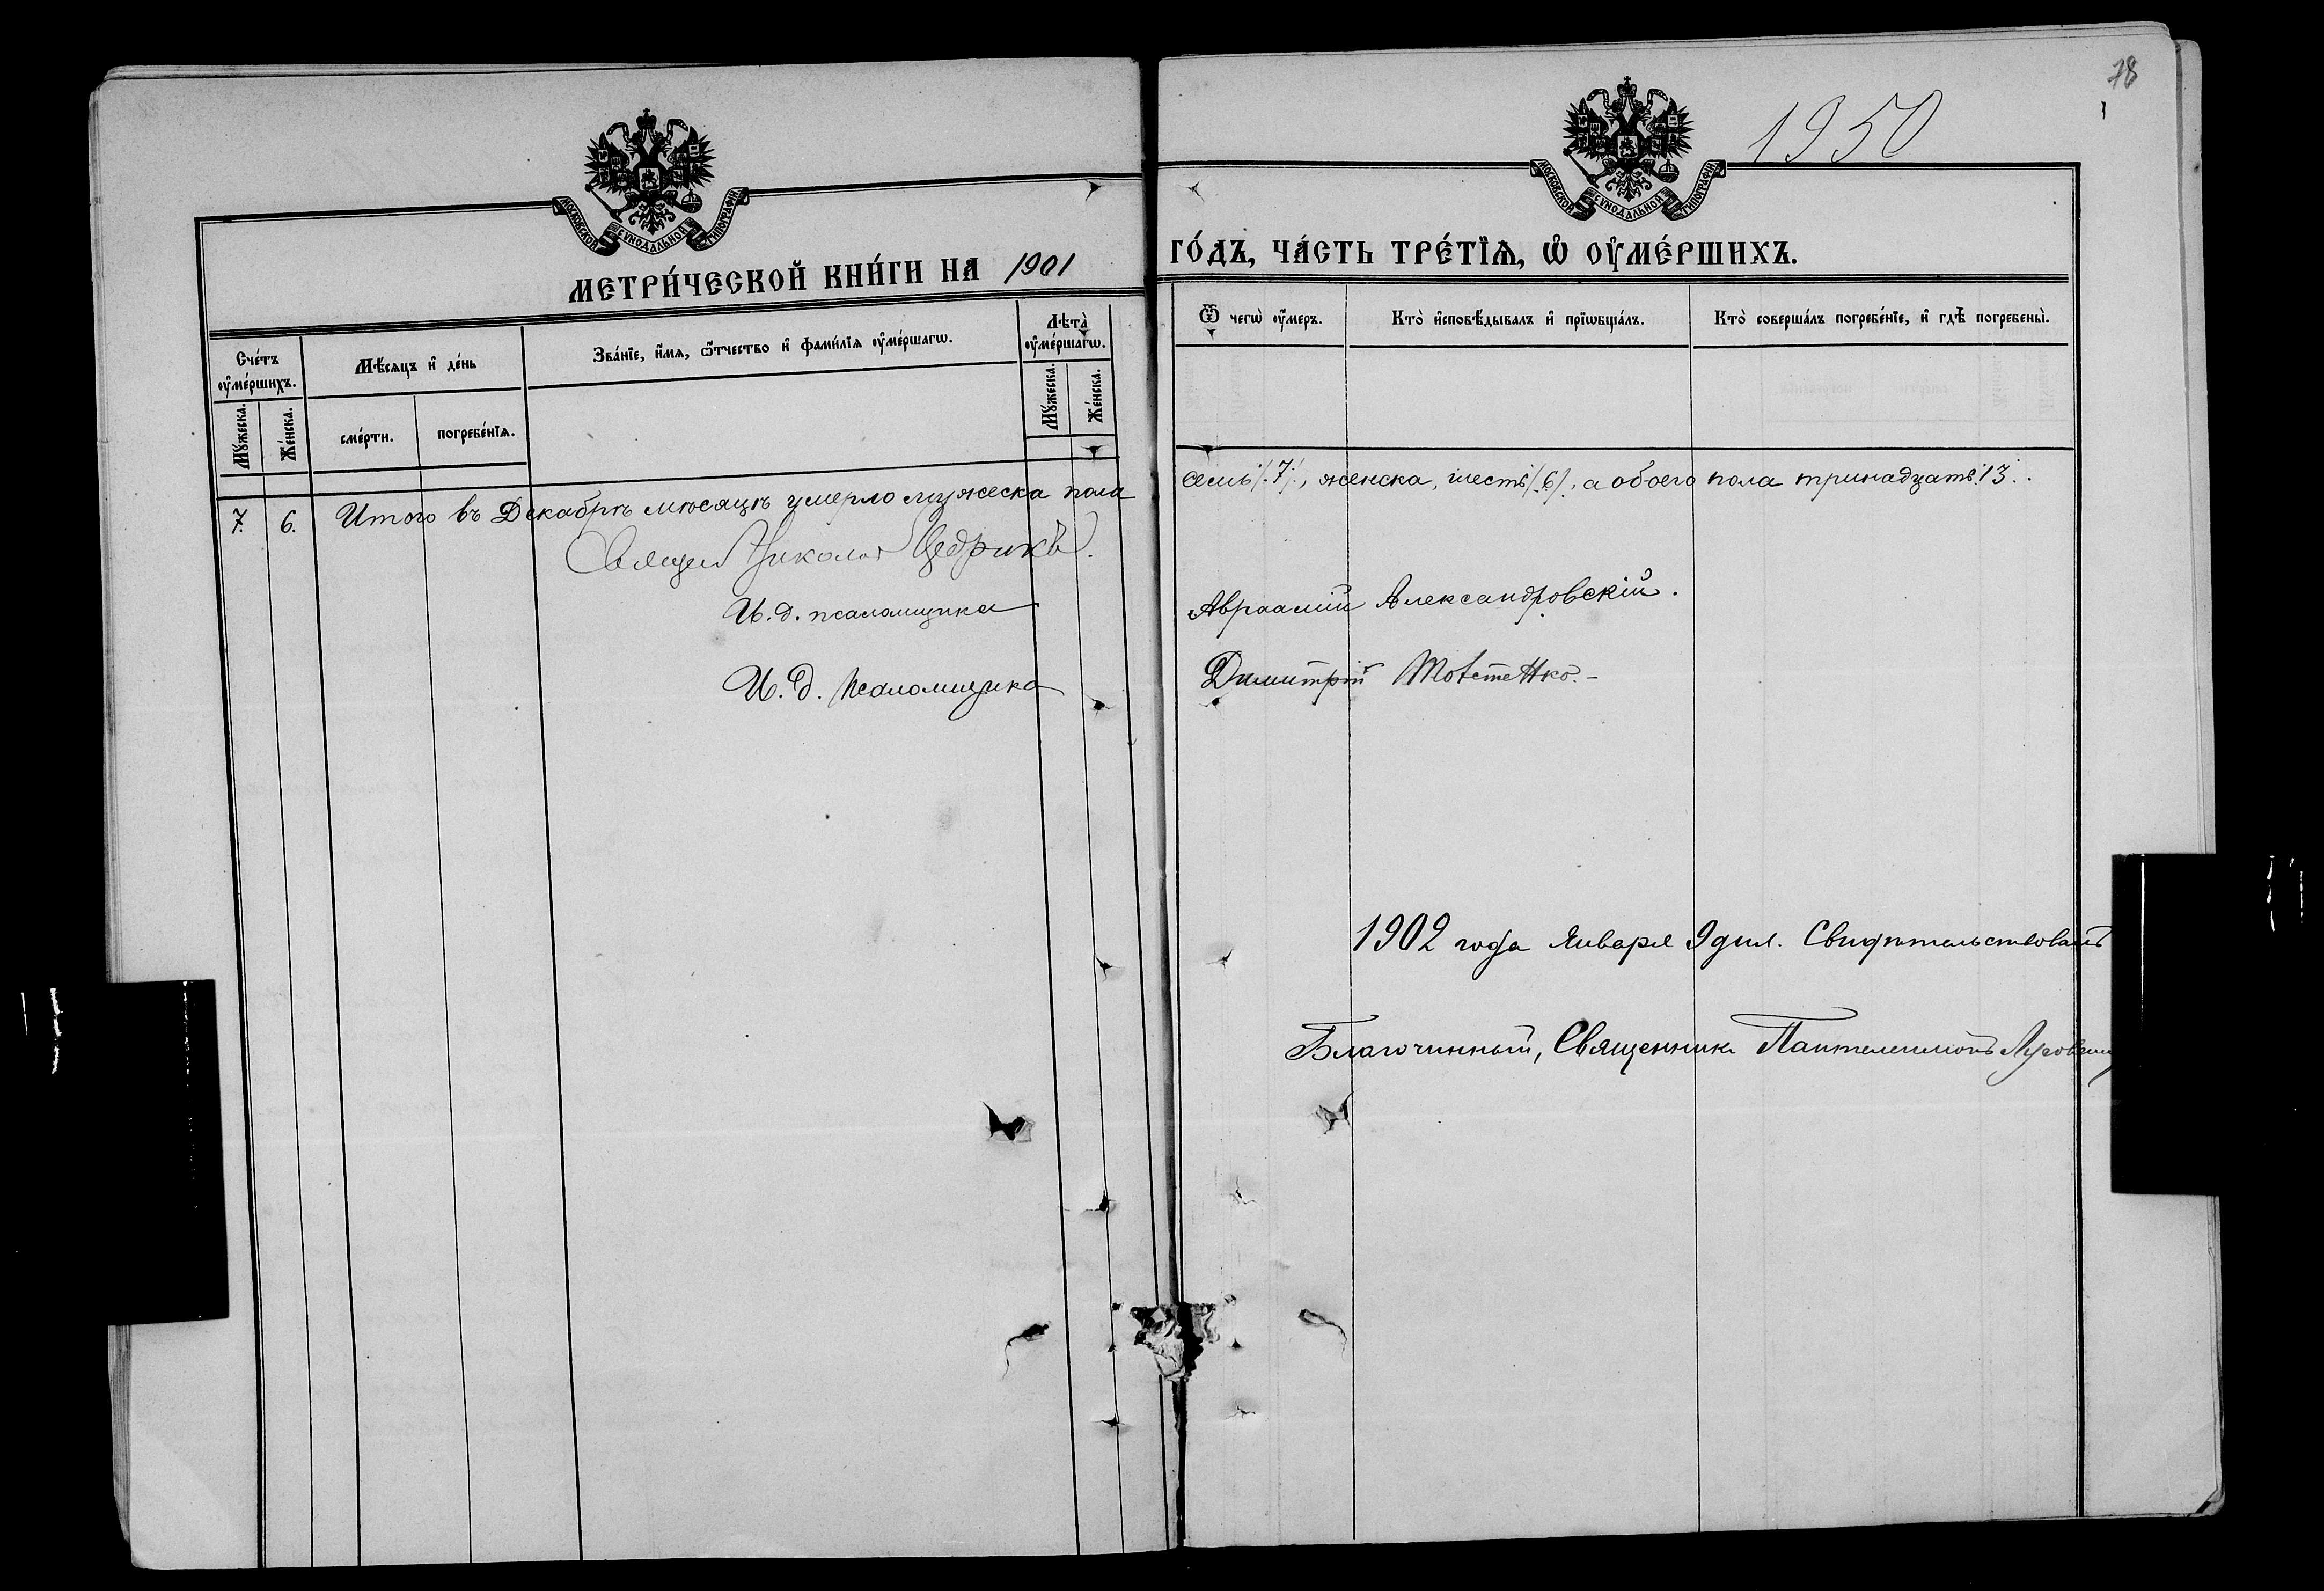 78
1950
МОСКОВСКОЙ СѴНОДАЛЬНОЙ ТИПОГРАФІИ
МОСКОВСКОЙ СѴНОДАЛЬНОЙ ТИПОГРАФІИ
МЕТРИ́ЧЕСКОЙ КНИ́ГИ НА 1901 ГО́ДЪ, ЧА́СТЬ ТРЕ́ТЇѦ, Ѡ҆ ОУ҆МЕ́РШИХЪ.
Сче́тъ оу҆ме́ршихъ.
Мꙋ́жеска.
Же́нска.
Мѣ́сяцъ и҆ де́нь
сме́рти.
погребе́нїѧ.
Зва́нїе, и҆́мѧ, ѻ҆́тчество и҆ фами́лїѧ оу҆ме́ршагѡ.
Лѣ́та оу҆ме́ршагѡ.
Мꙋ́жеска.
Же́нска.
Ѿ чегѡ̀ оу҆́меръ.
Кто̀ и҆сповѣ́дывалъ и҆ прїѡбща́лъ.
Кто̀ соверша́лъ погребе́нїе, и҆ гдѣ̀ погребены̀.
7. 6. Итого въ Декабрѣ мѣсяцѣ умерло мужеска пола семь /.7./, женска, шесть /.6./, а обоего пола тринадцать. 13.
Священ Николай Цедрикъ.
И. д. псаломщика Авраамій Александровскій.
И. д. Псаломщика Димитрій Товстенко.-
1902 года Января 9 дня. Свидѣтельствовалъ
Благочинный, Священникъ Пантелеимонъ